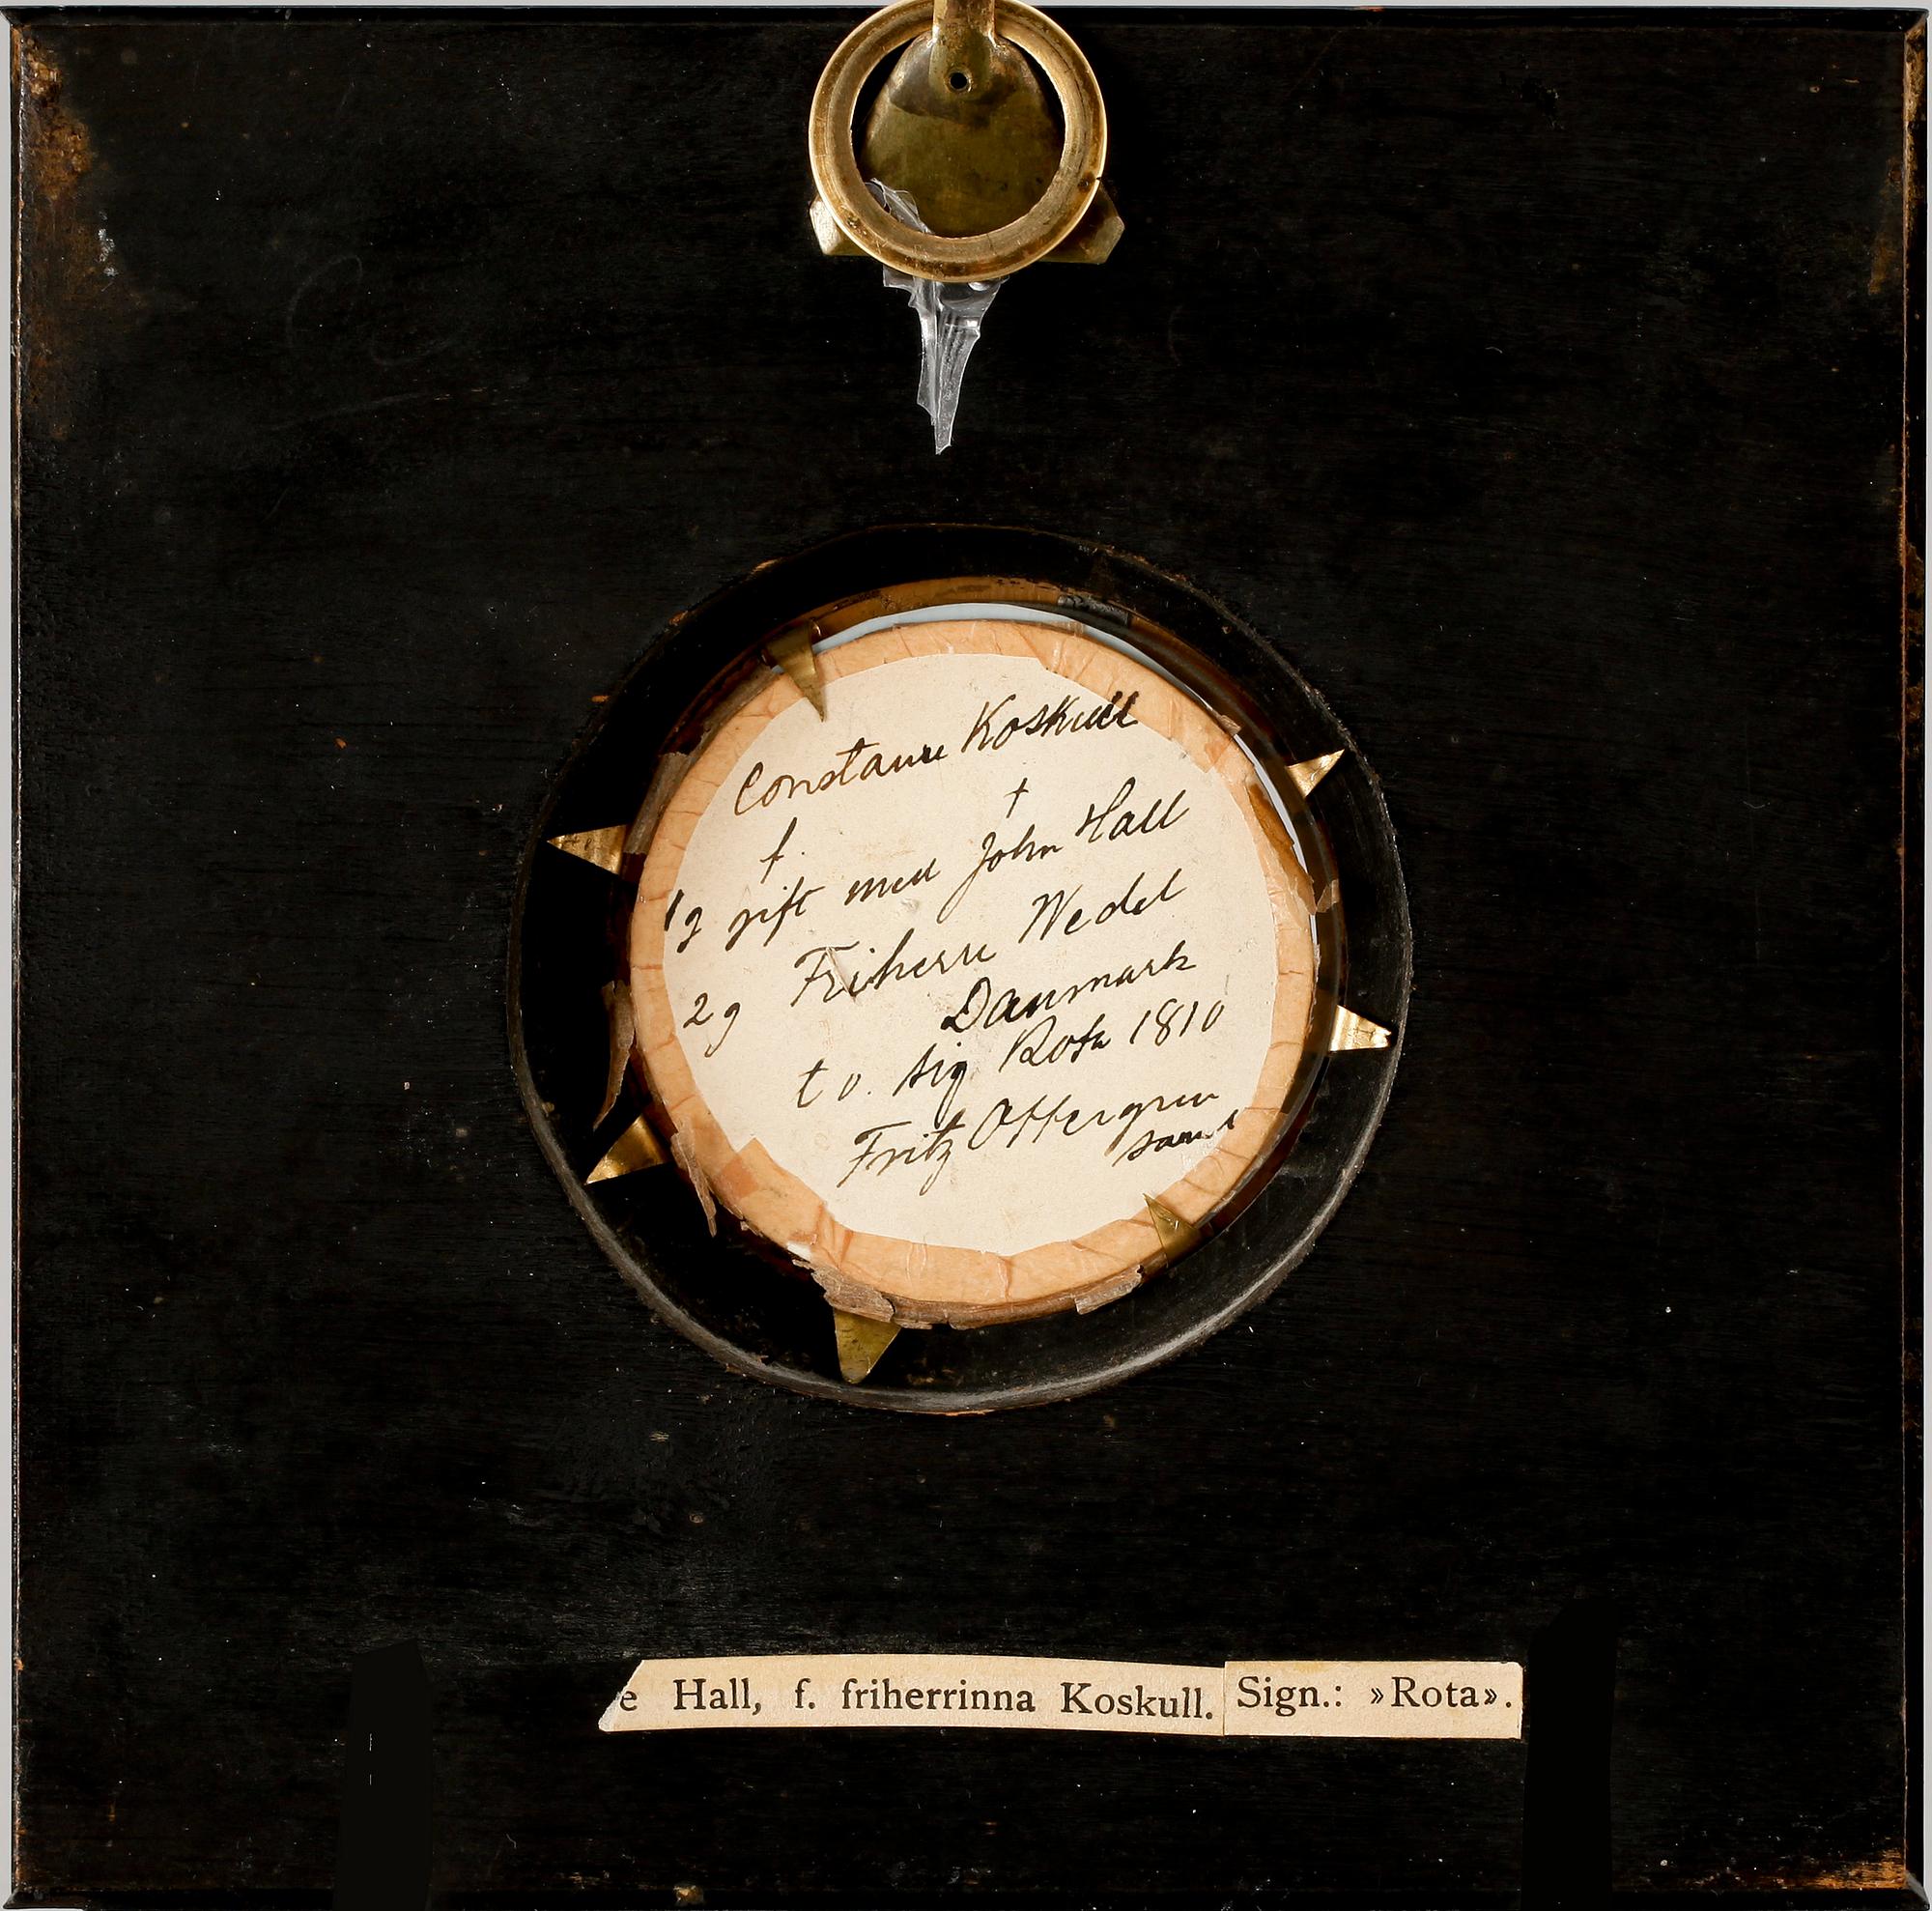 Constance Koskull
†. †
1g gift med John Hall
2g Friherre Wedel
Danmark
t v. sig Rota 1810
Fritz Ottergren
saml
e Hall, f. friherrinna Koskull. Sign.: »Rota».